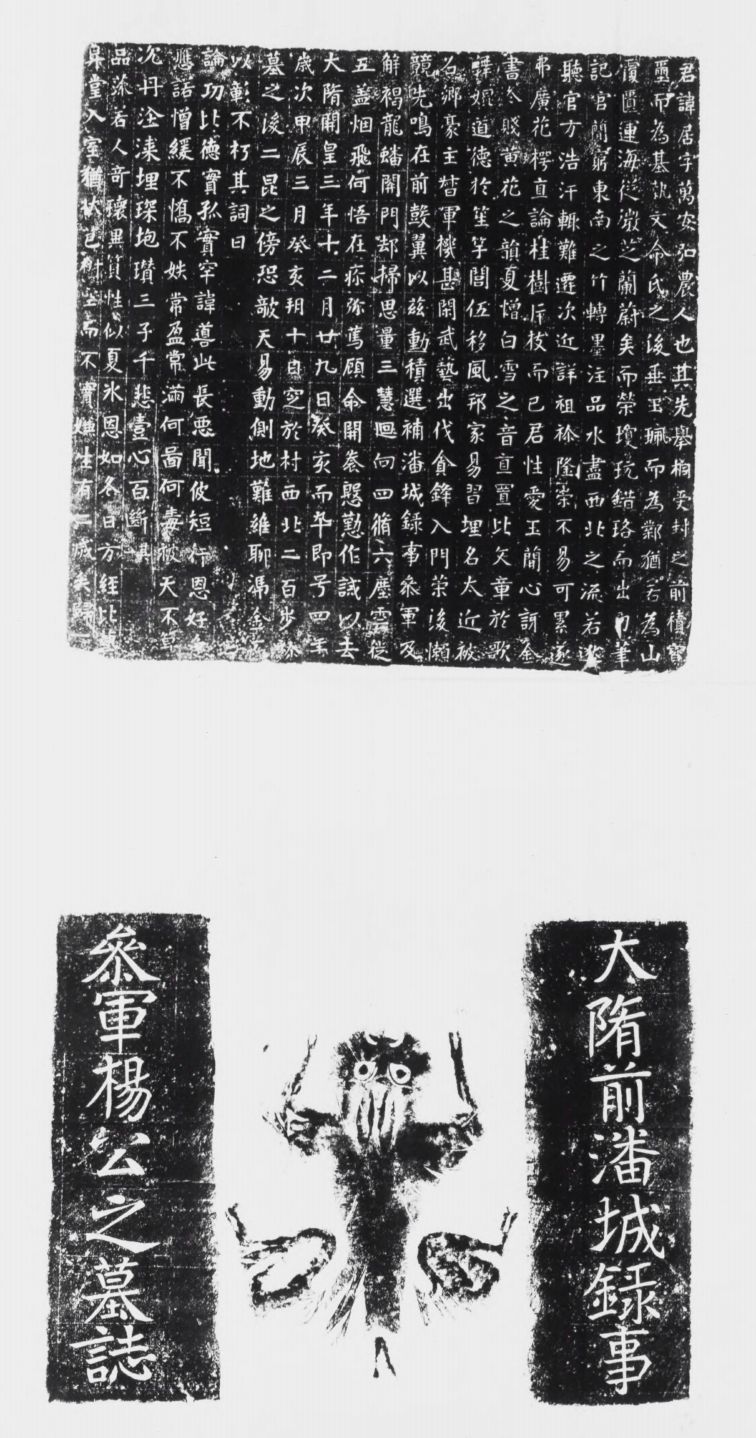 君諱居字萬安弘農人也其先舉梅受封之前積寶
璽而為基執文命氏之後垂玉珮而為鄰猶若為山
覆匱連海從微芝蘭蔚矣而榮瓊玩錯珞而出自筆
記官門窮東南之竹轉墨注品水盡西北之流若
聽官方浩汗輙難遷次近詳祖祢隆崇不易可累逐
弗廣花樗直論桂樹斥枝而已君性愛玉蘭心訝金
書令賤黄花之韻夏憎白雪之音直置比文章於歌
婫道德於笙竽閭伍移風邦家易習埋名太近被
召鄉豪主督軍機甚閑武藝出伐貪鋒入門榮後懶
競先鳴在前鼓翼以兹動積選補潘城録事叅軍及
解褐龍蟠關門却掃思量三慧迴向四脩六塵雲從
五蓋烟飛何悟在疹弥萬顧命開泰慇懃作誡以去
大隋開皇三年十二月廿九日癸亥而卒即号四年
歲次甲辰三月癸亥朔十日窆於村西北二百步
墓之後二昆之傍恐敬天易動側地難維聊馮金
以彰不朽其詞曰
論功比德實孤實罕諱遵此長惡聞彼短行恩好
應話憎緩不憍不妷常盈常滿何啚何毒彼天不
沉丹淦涷埋琛抱瓚三子千悲壹心百斷其
品藻若人奇瓌異質性似夏氷恩如冬日方經比
昇堂入室猶 而不實 生有 歸
大隋前潘城録事
叅軍楊公之墓誌